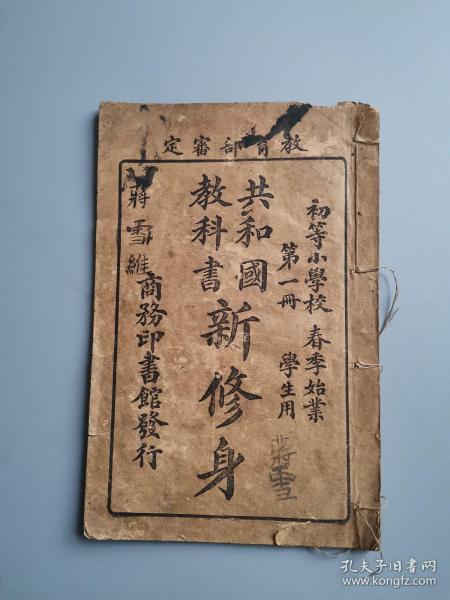 教育部審定
初等小學校 春季始業
第一冊 學生用
共和國
教科書
新修身
商務印書館發行
蔣雪維
蔣雪
孔夫子旧书网
www.kongfz.com